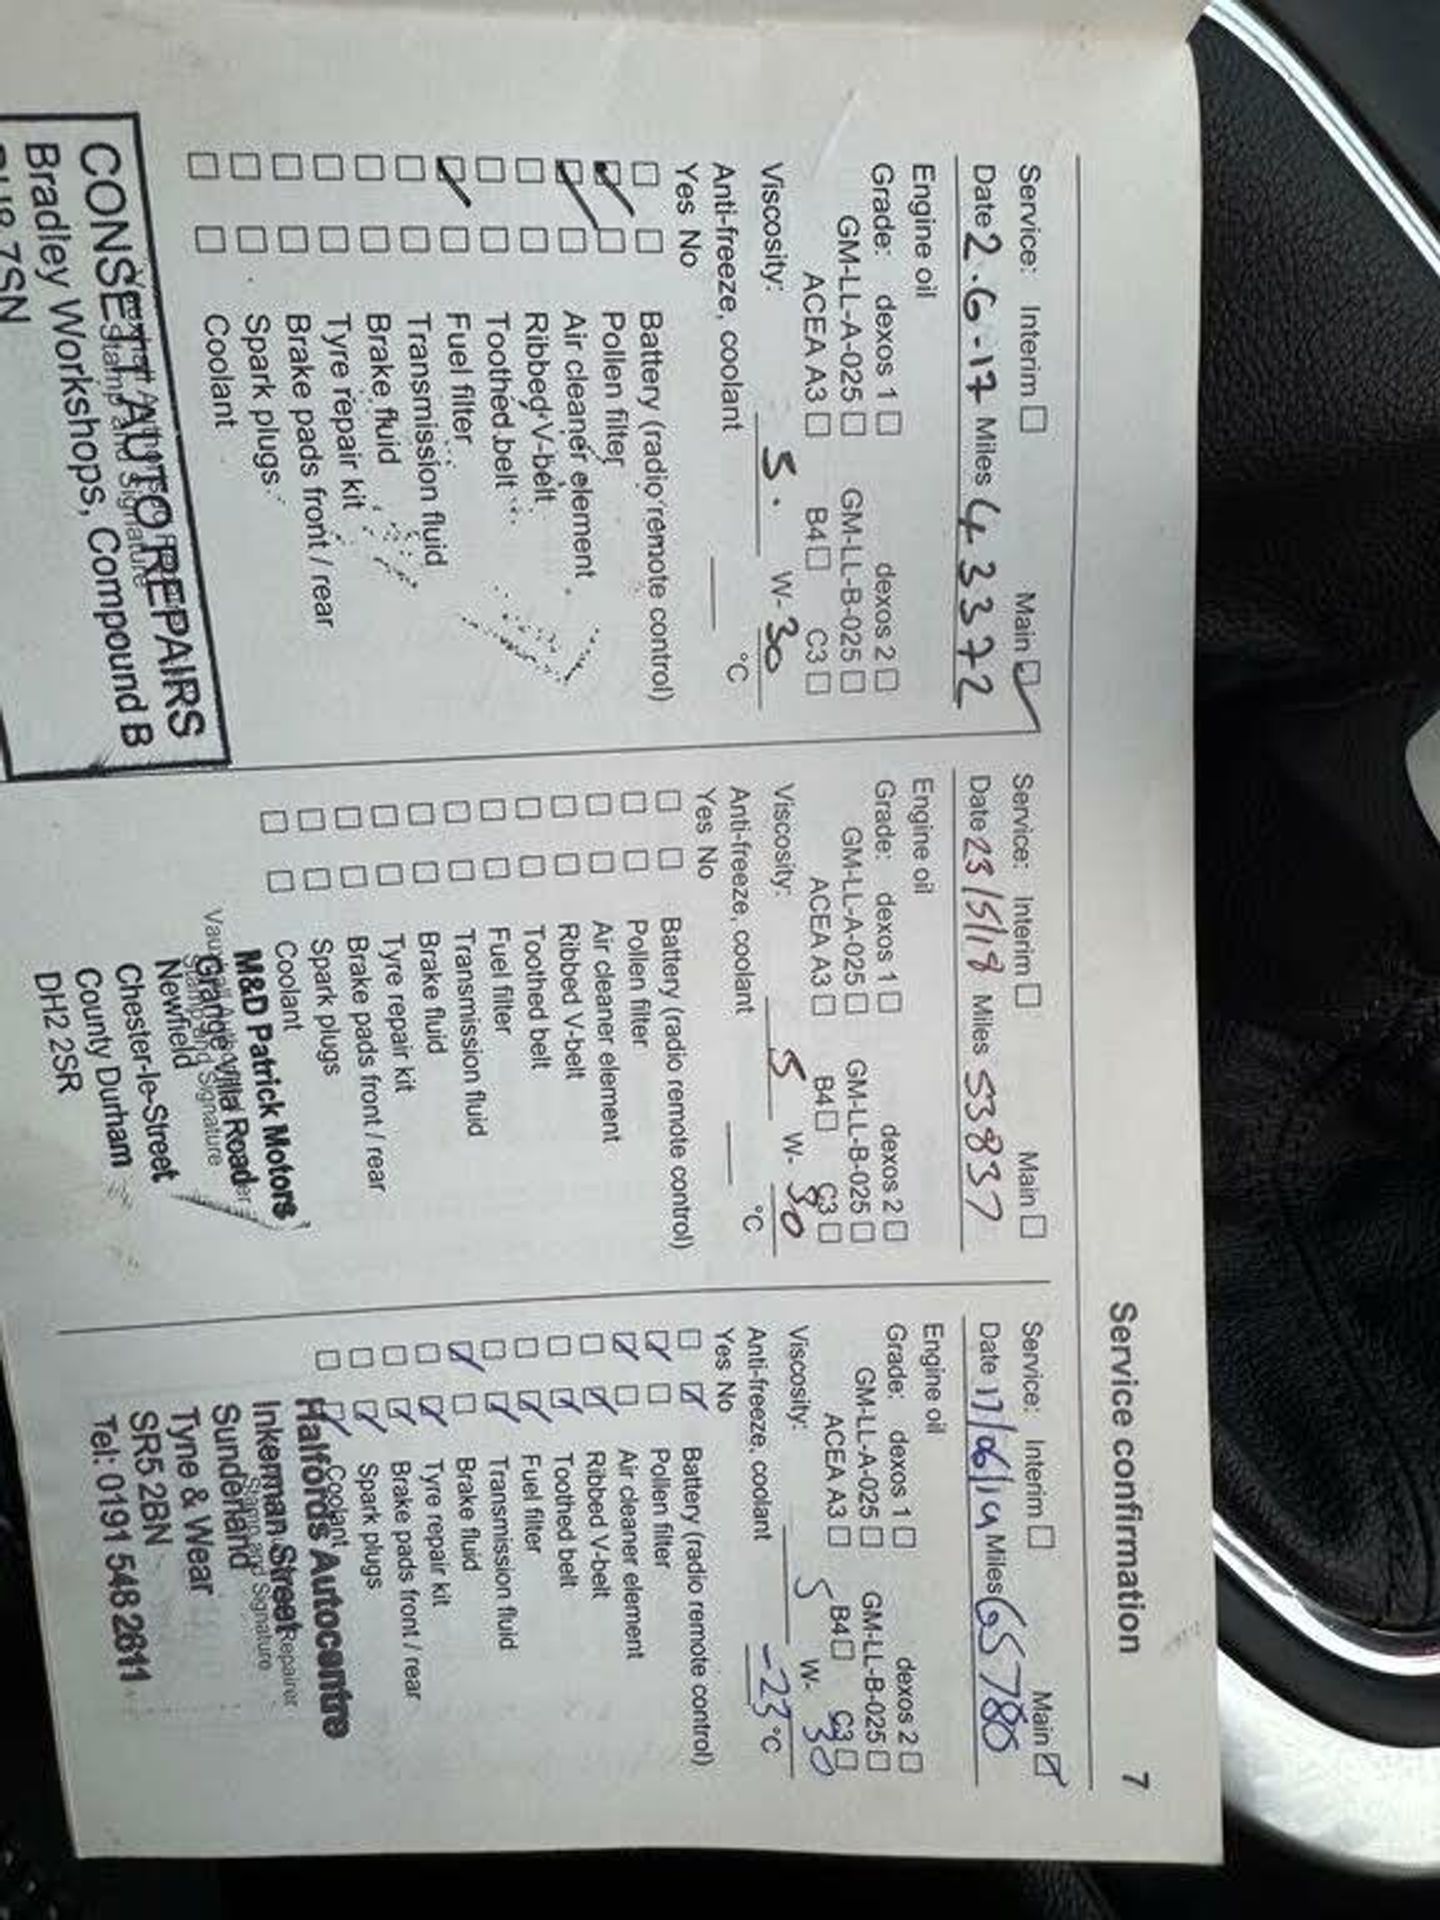 Service confirmation 7
Service: Interim ☐ Main ☑
Date 2.6.17 Miles 43372
Engine oil
Grade: dexos 1 ☐ dexos 2 ☐
GM-LL-A-025 ☐ GM-LL-B-025 ☐
ACEA A3 ☐ B4 ☐ C3 ☐
Viscosity: 5. W-30
Anti-freeze, coolant °C
Yes No
☐ ☐ Battery (radio remote control)
☑ ☐ Pollen filter
☑ ☐ Air cleaner element
☐ ☐ Ribbed V-belt
☐ ☐ Toothed belt
☑ ☐ Fuel filter
☐ ☐ Transmission fluid
☐ ☐ Brake fluid
☐ ☐ Tyre repair kit
☐ ☐ Brake pads front / rear
☐ ☐ Spark plugs
☐ ☐ Coolant
Stamp and Signature
CONSETT AUTO REPAIRS
Bradley Workshops, Compound B
7SN
Service: Interim ☐ Main ☐
Date 23/5/18 Miles 53837
Engine oil
Grade: dexos 1 ☐ dexos 2 ☐
GM-LL-A-025 ☐ GM-LL-B-025 ☐
ACEA A3 ☐ B4 ☐ C3 ☐
Viscosity: 5 W-30
Anti-freeze, coolant °C
Yes No
☐ ☐ Battery (radio remote control)
☐ ☐ Pollen filter
☐ ☐ Air cleaner element
☐ ☐ Ribbed V-belt
☐ ☐ Toothed belt
☐ ☐ Fuel filter
☐ ☐ Transmission fluid
☐ ☐ Brake fluid
☐ ☐ Tyre repair kit
☐ ☐ Brake pads front / rear
☐ ☐ Spark plugs
☐ ☐ Coolant
M&D Patrick Motors
Grange Villa Road
Stamp and Signature
Newfield
Chester-le-Street
County Durham
DH2 2SR
Service: Interim ☐ Main ☑
Date 17/06/19 Miles 65780
Engine oil
Grade: dexos 1 ☐ dexos 2 ☐
GM-LL-A-025 ☐ GM-LL-B-025 ☐
ACEA A3 ☐ B4 ☐ C3 ☐
Viscosity: 5 W-30
Anti-freeze, coolant -23 °C
Yes No
☐ ☑ Battery (radio remote control)
☑ ☐ Pollen filter
☑ ☐ Air cleaner element
☐ ☑ Ribbed V-belt
☐ ☑ Toothed belt
☐ ☑ Fuel filter
☐ ☑ Transmission fluid
☑ ☐ Brake fluid
☐ ☑ Tyre repair kit
☐ ☑ Brake pads front / rear
☐ ☑ Spark plugs
☐ ☑ Coolant
Halfords Autocentre
Repairer
Inkerman Street
Stamp and Signature
Sunderland
Tyne & Wear
SR5 2BN
Tel: 0191 548 2611